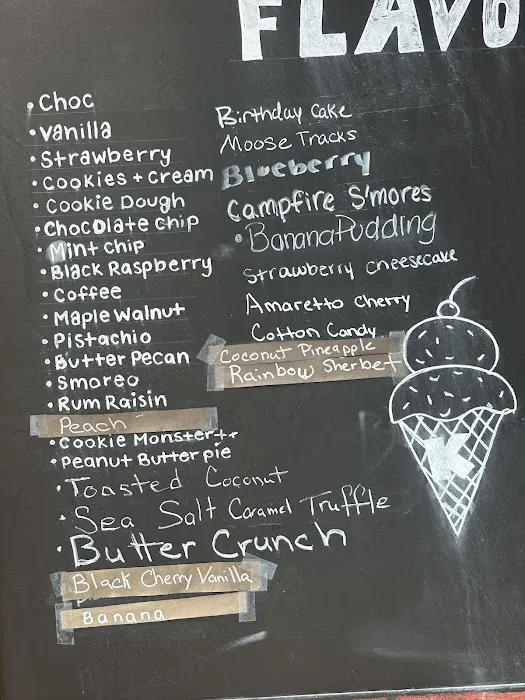 FLAVO
• Choc
• Vanilla
• Strawberry
• Cookies + Cream
• Cookie Dough
• Chocolate Chip
• Mint Chip
• Black Raspberry
• Coffee
• Maple Walnut
• Pistachio
• Butter Pecan
• Smoreo
• Rum Raisin
Peach
• Cookie Monster
• Peanut Butter pie
• Toasted Coconut
• Sea Salt Caramel Truffle
• Butter Crunch
Black Cherry Vanilla
Banana
Birthday Cake
Moose Tracks
Blueberry
Campfire S'mores
• Banana Pudding
Strawberry Cheesecake
Amaretto Cherry
Cotton Candy
Coconut Pineapple
Rainbow Sherbet
K